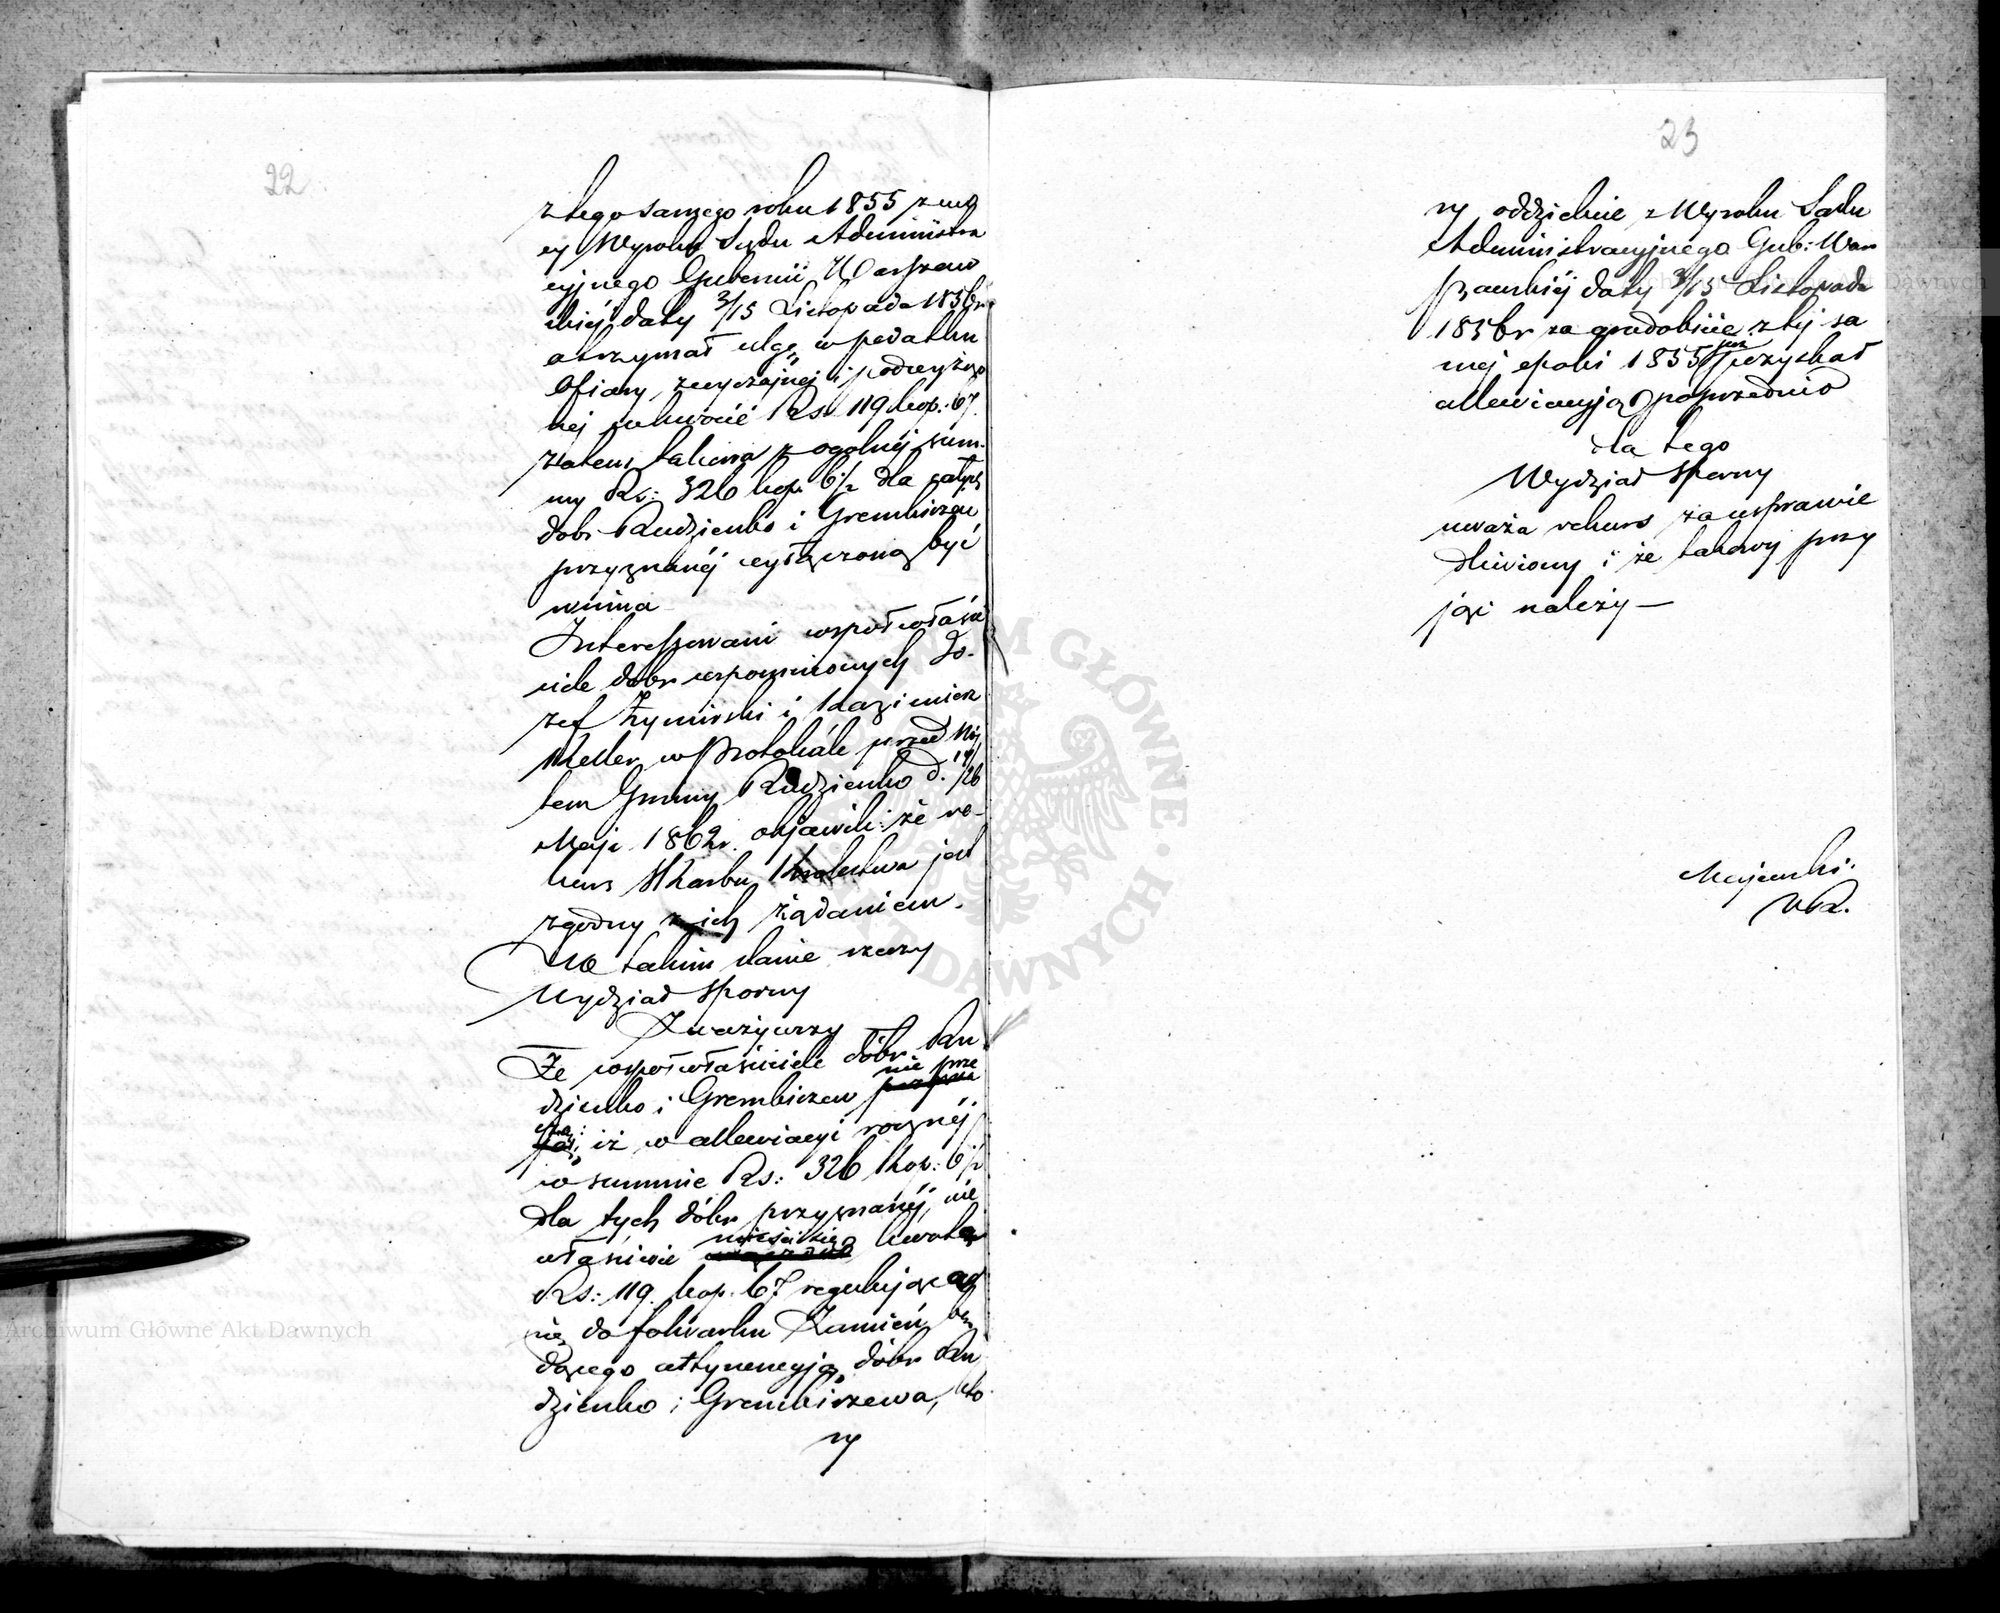 22
z tego samego roku 1855 z mo
cy Wyroku Sądu Administra
cyjnego Gubernii Warszaw
skiéj daty 3/15 Listopada 1856 r.
otrzymał ulgę w podatku
Ofiary, zwyczajnéj i podwyższo
nej w kwocie Rs. 119 kop: 67.
zatem takowa z ogolnéj sum-
my Rs: 326 kop. 6½ dla całych
dobr Rudzienko i Grembiszew
przyznanéj wyłączoną być
winna
Interessowani wspołwłaści
ciele dobr wspomnionych Jo-
zef Żymirski i Kazimierz
Keller w Protokóle przed Wój
tem Gminy Rudzienko d. 14/26
Maja 1862 r. objawili: że re-
kurs Skarbu Krolestwa jest
zgodny z ich żądaniem.
W takim stanie rzeczy
Wydział Sporny
Zważywszy
Że wspołwłaściciele dóbr Ru
dzienko i Grembiszew nie prze
czą; iż w allewiacyi rocznéj
w summie Rs: 326 kop: 6½
dla tych dóbr przyznanéj, nie
właściwie mieści się kwota
Rs: 119. kop. 67 regulująca
się do folwarku Kamień bę
dącego attynencyją dóbr Ru
dzienko i Grembiszewa, kto-
ry
23
ry oddzielnie z Wyroku Sądu
Administracyjnego Gub: War
szawskiéj daty 3/15 Listopada
1856 r za gradobicie z téj sa
mej epoki 1855 już pozyskał
allewiacyją poprzednio
dla tego
Wydział Sporny
uważa rekurs za usprawie
dliwiony i że takowy przy
jąć należy —
Majewski.
Archiwum Główne Akt Dawnych